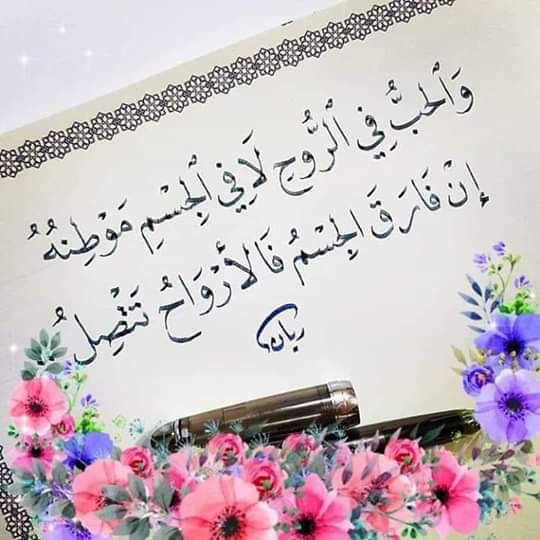 وَٱلحُبُّ فِي ٱلرُّوحِ لَا فِي ٱلجِسْمِ مَوْطِنُهُ
إِنْ فَارَقَ الجِسْمُ فَالأَرْوَاحُ تَتَّصِلُ
ربان